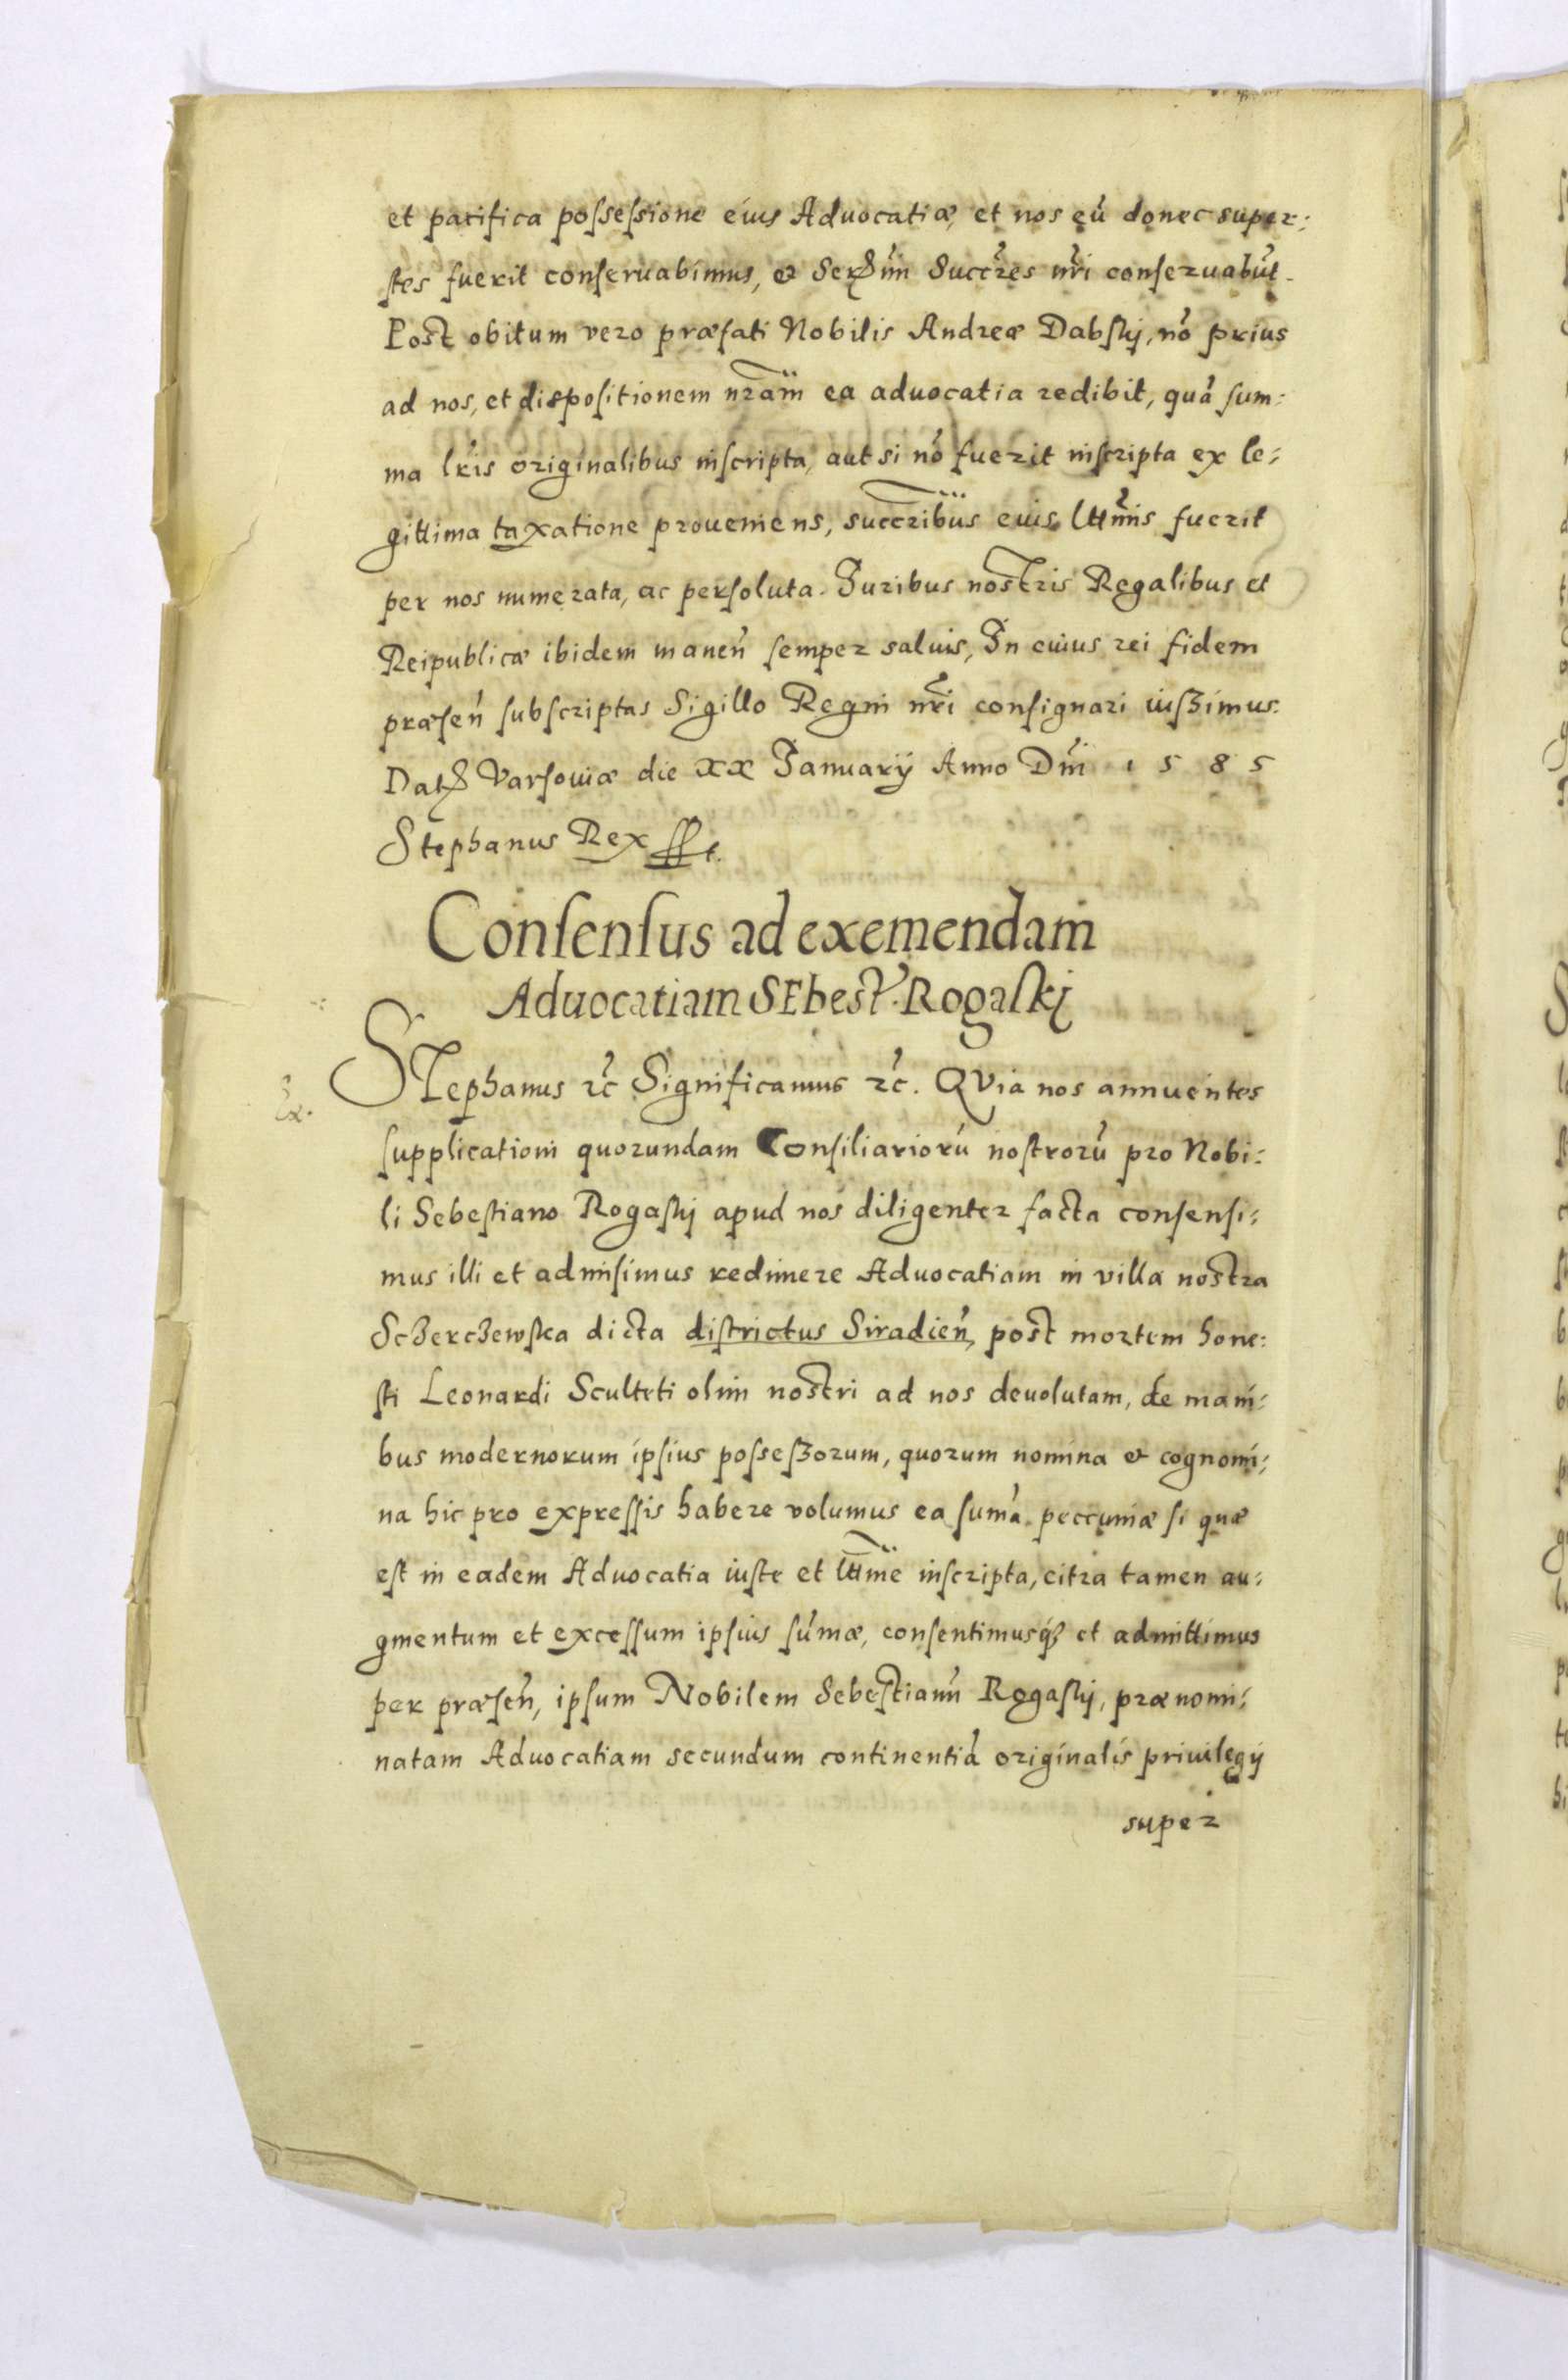 et pacifica possessione eius Advocatiæ, et nos eũ donec super:
stes fuerit conservabimus, et Serẽmi Succr̃es nr̃i conservabũt.
Post obitum vero præfati Nobilis Andreæ Dabskj, nõ prius
ad nos, et dispositionem nr̃am ea advocatia redibit, quã sum:
ma lr̃is originalibus inscripta, aut si nõ fuerit inscripta ex le:
gittima taxatione proveniens, succr̃ibus eius lttm̃is fuerit
per nos numerata, ac persoluta. Juribus nostris Regalibus et
Reipublicæ ibidem maneñ semper salvis, In cuius rei fidem
præseñ subscriptas Sigillo Regni nr̃i consignari iussimus.
Datȝ Varsoviæ die XX Januarij Anno Dñi 1585
Stephanus Rex sst.
Consensus ad exemendam
Advocatiam SEbest. Rogaskj
Ex.
STephanus &c̃ Significamus &c̃. QVia nos annuentes
supplicationi quorundam Consiliariorũ nostrorũ pro Nobi:
li Sebestiano Rogaskj apud nos diligenter facta consensi:
mus illi et admisimus redimere Advocatiam in villa nostra
Sczerczewska dicta districtus Siradieñ, post mortem hone:
sti Leonardi Sculteti olim nostri ad nos devolutam, de mani:
bus modernorum ipsius possessorum, quorum nomina et cognomi:
na hic pro expressis habere volumus ea sum̃a peccuniæ si quæ
est in eadem Advocatia iuste et lttm̃e inscripta, citra tamen au:
gmentum et excessum ipsius sum̃æ, consentimusqȝ et admittimus
per præseñ, ipsum Nobilem Sebestianũ Rogaskj, prænomi:
natam Advocatiam secundum continentiã originalis privilegij
super